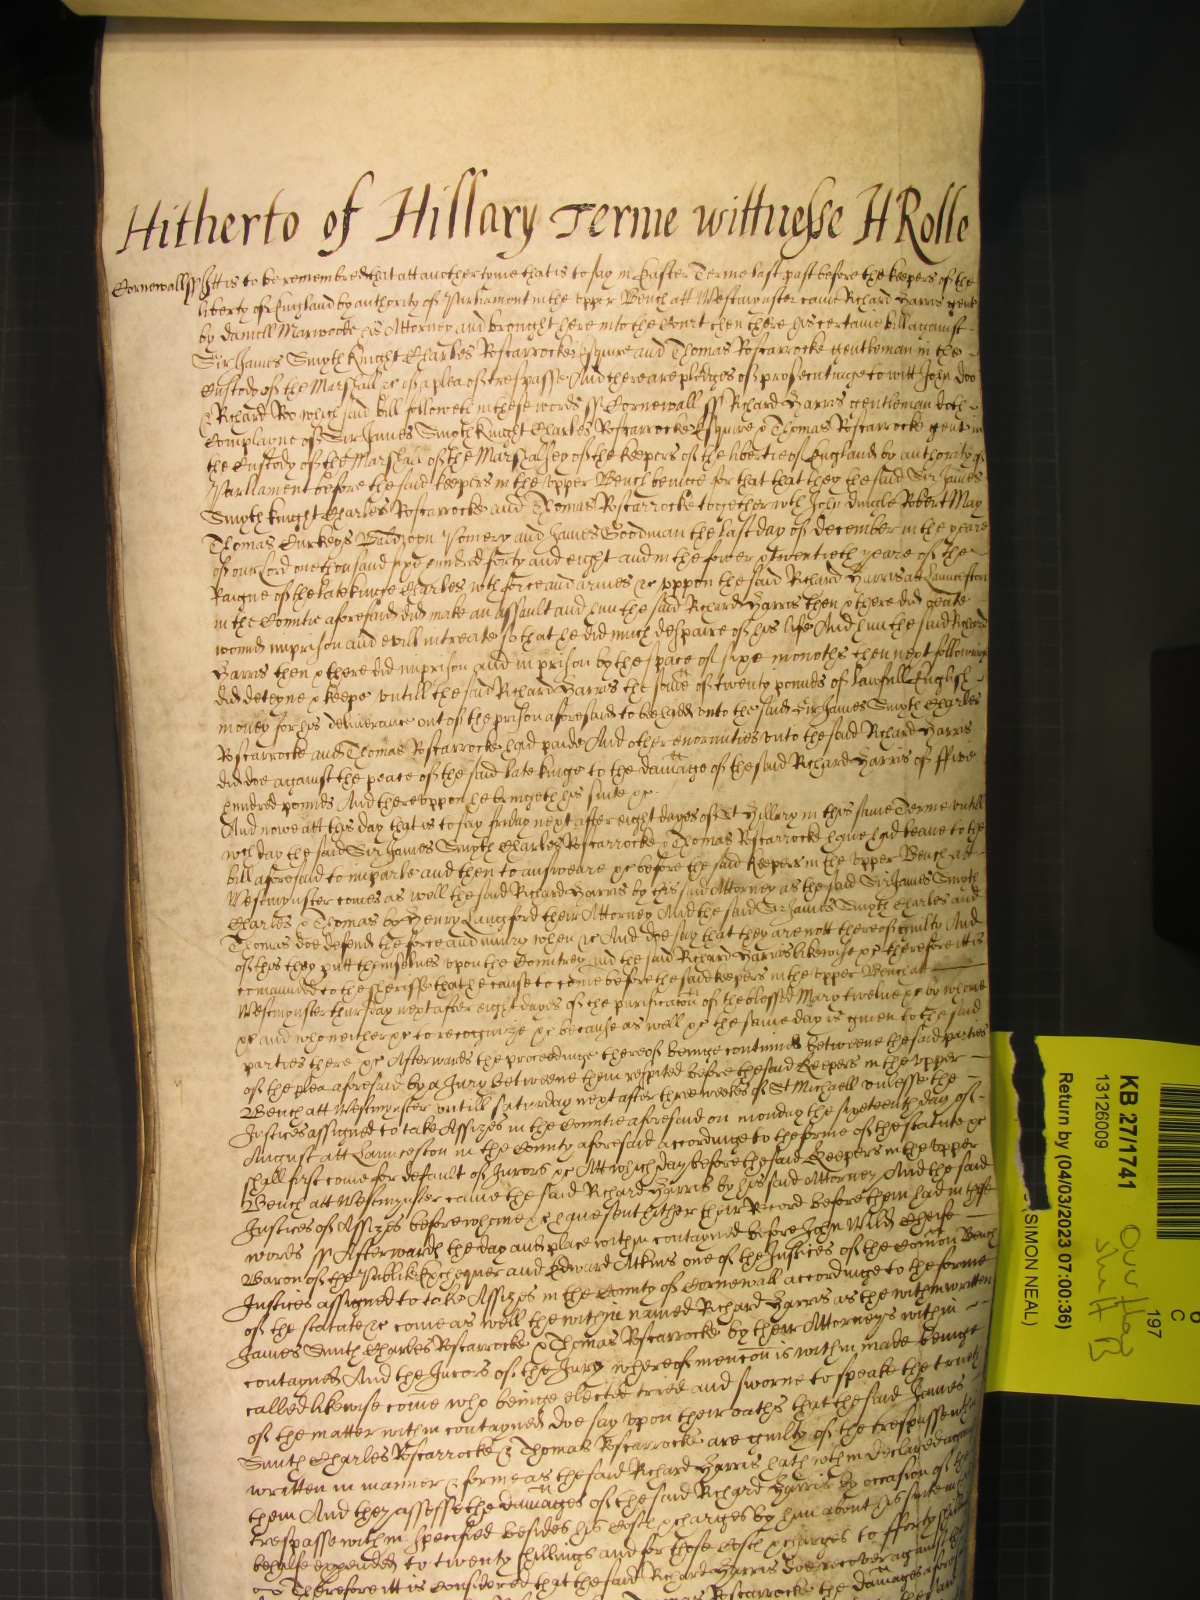 Hitherto of Hillary Terme wittnesse H Rolle
Cornewall ss Itt is to be remembred that att another tyme that is to say in Easter Terme last past before the keepers of the
liberty of England by authority of Parliament in the upper Bench att Westmynster came Richard Harris gent
by Daniell Marwoode his Attorney and brought here into the Court then there his certaine bill against
Sir James Smyth Knight Charles Roscarrocke Esquire and Thomas Roscarrocke gentleman in the
Custody of the Marshall &c of a plea of trespasse And there are pledges of prosecutinge to witt John Doo
& Richard Roo which said bill followeth in these words ss Cornewall ss Richard Harris gentleman doth
Complayne of Sir James Smyth Knight Charles Roscarrocke Esquire & Thomas Roscarrocke gent in
the Custody of the Marshall of the Marshalsey of the keepers of the libertie of England by authority of
Parliament before the said keepers in the upper Bench beinge for that that they the said Sir James
Smyth knight Charles Roscarrocke and Thomas Roscarrocke together wth John Dingle Robert May
Thomas Curkeys Baldwon Pomery and James Goodman the last day of December in the yeare
of our Lord one thousand sixe hundred forty and eight and in the fower & twentieth yeare of the
Raigne of the late kinge Charles wth force and armes &c uppon the said Richard Harris att Launceston
in the Countie aforesaid did make an assault and him the said Richard Harris then & there did beate
wound imprison and evill intreate so that he did much despaire of his life And him the said Richard
Harris then & there did imprison and in prison by the space of sixe monoths then next followinge
did deteyne & keepe untill the said Richard Harris the some of twenty pounds of lawfull English
money for his deliverance out of the prison aforesaid to be had unto the said Sir James Smyth Charles
Roscarrocke and Thomas Roscarrocke had paid And other enormities unto the said Richard Harris
did doe against the peace of the said late kinge to the damage of the said Richard Harris of ffive
hundred pounds And thereuppon he bringeth his suite &c
And nowe att this day that is to say friday next after eight dayes of St Hillary in this same Terme untill
wch day the said Sir James Smyth Charles Roscarrocke & Thomas Roscarrocke have had leave to the
bill aforesaid to imparle and then to answeare &c before the said keepers in the upper Bench att
Westmynster comes as well the said Richard Harris by his said Attorney as the said Sir James Smyth
Charles & Thomas by Henry Langford their Attorney And the said Sir James Smyth Charles and
Thomas doe defend the force and iniury when &c And doe say that they are nott thereof guilty And
of this they putt themselves upon the Countrey and the said Richard Harris likewise &c therefore itt is
comaunded to the sheriffe that he cause to come before the said keepers in the upper Bench att
Westmynster thursday next after eight dayes of the purificacon of the blessed Mary twelve &c by whome
&c and who neither &c to recognize &c because as well &c the same day is given to the said
parties there &c Afterwards the proceedinge thereof beinge continued betweene the said parties
of the plea aforesaid by a Jury betweene them respited before the said keepers in the upper
Bench att Westmynster untill saturday next after three weekes of St Michaell unlesse the
Justices assigned to take Assizes in the Countie aforesaid on monday the sixteenth day of
August att Launceston in the County aforesaid accordinge to the forme of the statute &c
shall first come for default of Jurors &c Att which day before the said keepers in the upper
Bench att Westmynster came the said Richard Harris by his said Attorney And the said
Justices of Assizes before whome &c have sent hither their Record before them had in these
words ss Afterwards the day and place within contayned before John Wild Cheife
Baron of the Publike Exchequer and Edward Atkins one of the Justices of the Comon Bench
Justices assigned to take Assizes in the County of Cornewall accordinge to the forme
of the statute &c come as well the within named Richard Harris as the within written
James Smith Charles Roscarrocke & Thomas Roscarrocke by their Attorneys within
contayned And the Jurors of the Jury whereof mencon is within made beinge
called likewise come who beinge elected tried and sworne to speake the trueth
of the matter within contayned doe say upon their oaths that the said James
Smith Charles Roscarrocke & Thomas Roscarrocke are guilty of the trespasse within
written in manner & forme as the said Richard Harris hath within declared against
them And they assesse the damages of the said Richard Harris by occasion of the
trespasse within specified besides his costs & charges by him about his suite in
behalfe expended to twenty shillings and for those costs & charges to fforty shillings
Therefore itt is considered that the said Richard Harris doe recover against the
Roscarrocke the damages aforesaid
KB 27/1741
13126009
Return by (04/03/2023 07:00:36)
(SIMON NEAL)
197
C